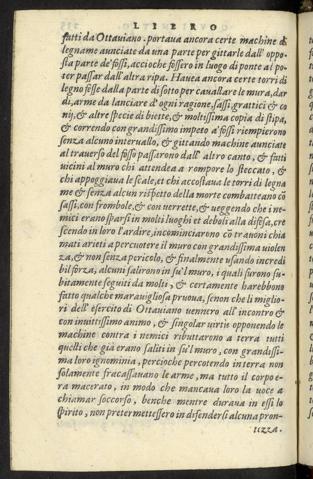 LIBERO
fatti da Ottauiano. portaua ancora certe machine di
legname auuciate da una parte per gittarle dall'oppo-
sta parte de'fossi, accioche fossero in luogo di ponte al po-
ter passar dall'altra ripa. Hauea ancora certe torri di
legno fesse dalla parte di sotto per caualcare le mura, dar
di, arme da lanciare d'ogni ragione, sassi, grattici & co
nij, & altre specie di biette, & moltissima copia di stipa,
& correndo con grandissimo impeto a' fossi riempierono
senza alcuno interuallo, & gittando machine auunciate
al trauerso del fosso passarono dall'altro canto, & fatti
uicini al muro chi attendea a rompere lo steccato, &
chi appoggiaua le scale, et chi accostaua le torri di legna
me & senza alcun rispetto della morte combatteano cō
sassi, con frombole, & con uerrette, & ueggendo che i ne-
mici erano sparsi in molti luoghi et deboli alla difesa, cre
scendo in loro l'ardire, incominciarono cō trauoni chia
mati arieti a percuotere il muro con grandissima uiolen
za, & non senza pericolo, & finalmente usando incredi
bil forza, alcuni salirono in su'l muro, i quali furono su-
bitamente seguiti da molti, & certamente harebbono
fatto qualche marauigliosa pruoua, senon che li miglio-
ri dell'esercito di Ottauiano uennero all'incontro &
con inuittissimo animo, & singolar uirtù opponendo le
machine contra i nemici ributtarono a terra tutti
quelli che già erano saliti in su'l muro, con grandissi-
ma loro ignominia, percioche percotendo interra non
solamente fracassauano le arme, ma tutto il corpo e-
ra macerato, in modo che mancaua loro la uoce a
chiamar soccorso, benche mentre duraua in essi lo
spirito, non pretermettessero in difendersi alcuna pron-
tezza.